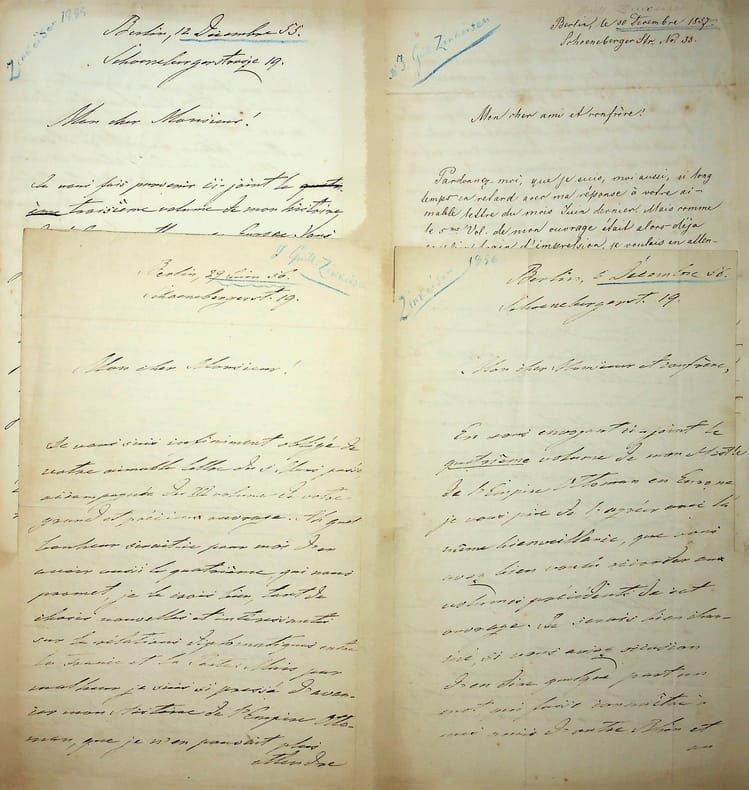 Zinkeisen 1855
Berlin, 12 Decembre 55.
Schoenebergerstrasse 19.
Mon cher Monsieur!
Je vous fais parvenir ci-joint le
troisième volume de mon histoire
Guill. Zinkeisen
Berlin, le 30 Decembre 1857.
Schoeneberger Str. No. 33.
Mon cher ami et confrère!
Pardonnez-moi, que je suis, moi aussi, si long
temps en retard avec ma réponse à votre ai-
mable lettre du mois Juin dernier. Mais comme
le 5me Vol. de mon ouvrage était alors déja
d'impression, je voulais en atten-
J Guill Zinkeisen
Berlin, 29 Juin 56.
Schoenebergerst. 19.
Mon cher Monsieur!
Je vous suis infiniment obligé de
votre aimable lettre du
accompagnée du volume de votre
grand et précieux ouvrage. quel
bonheur pour moi d'en
avoir aussi le quatrième qui nous
promet, je le crois bien, tant de
choses nouvelles et intéressantes
sur les rélations diplomatiques entre
la France et la Porte. Mais par
malheur je suis si pressé d'avan-
cer mon histoire de l'Empire Otto-
man, que je n'en pouvait plus
attendre
Zinkeisen 1856
Berlin, 2 Décembre 56.
Schoenebergerst. 19.
Mon cher Monsieur et confrère,
En vous envoyant ci-joint le
quatrième volume de mon
de l'Empire Ottoman en Europe
je vous prie de l'agréer avec la
même bienveillance, que vous
avez bien voulu accorder aux
volumes précédents de cet
ouvrage. Je serais bien char-
mé, si vous aviez occasion
d'en dire quelque part un
mot
d'outre Rhin et